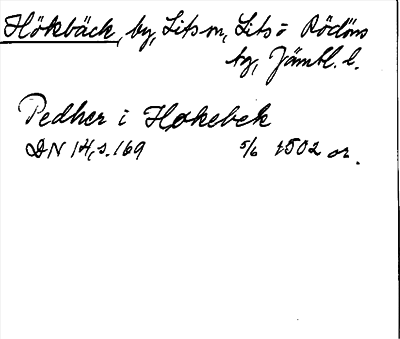 Hökbäck, by, Lits sn, Lits o Rödöns
tg, Jämtl. l.
Pedher i Hokebek
DN 14, s. 169 5/6 1502 or.